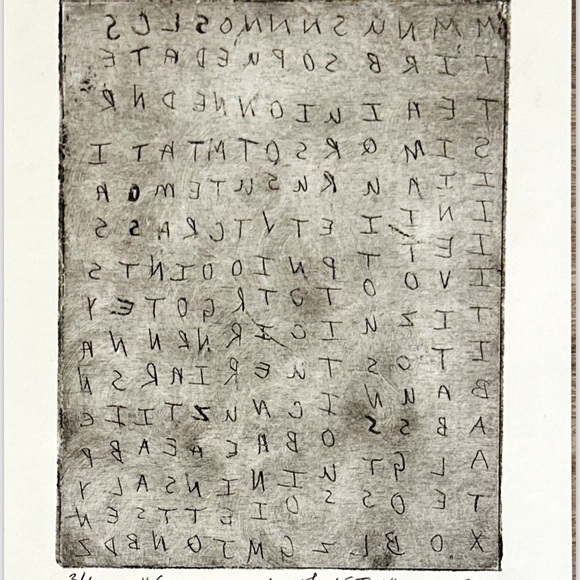 M M N U S N N N O S L C S
T I R B S O P U E D A T E
T E A I U I O N N E D N R
S I M Q R S Q T M T A T I
I I A U R U S U T E M O A
I N I I E T V T C R A S S
I E T T P N I O D I N T S
I V O O T O T R G O T E Y
T I Z U I C I R N R N N A
I T O S T U E R I A R S N
B A U N I C N U Z T I I E
A B S S O B A E A E A B P
A L G T U I N I N S A L Y
T E O S S O I G T T S E N
X O B L Z G M J O N B D Z